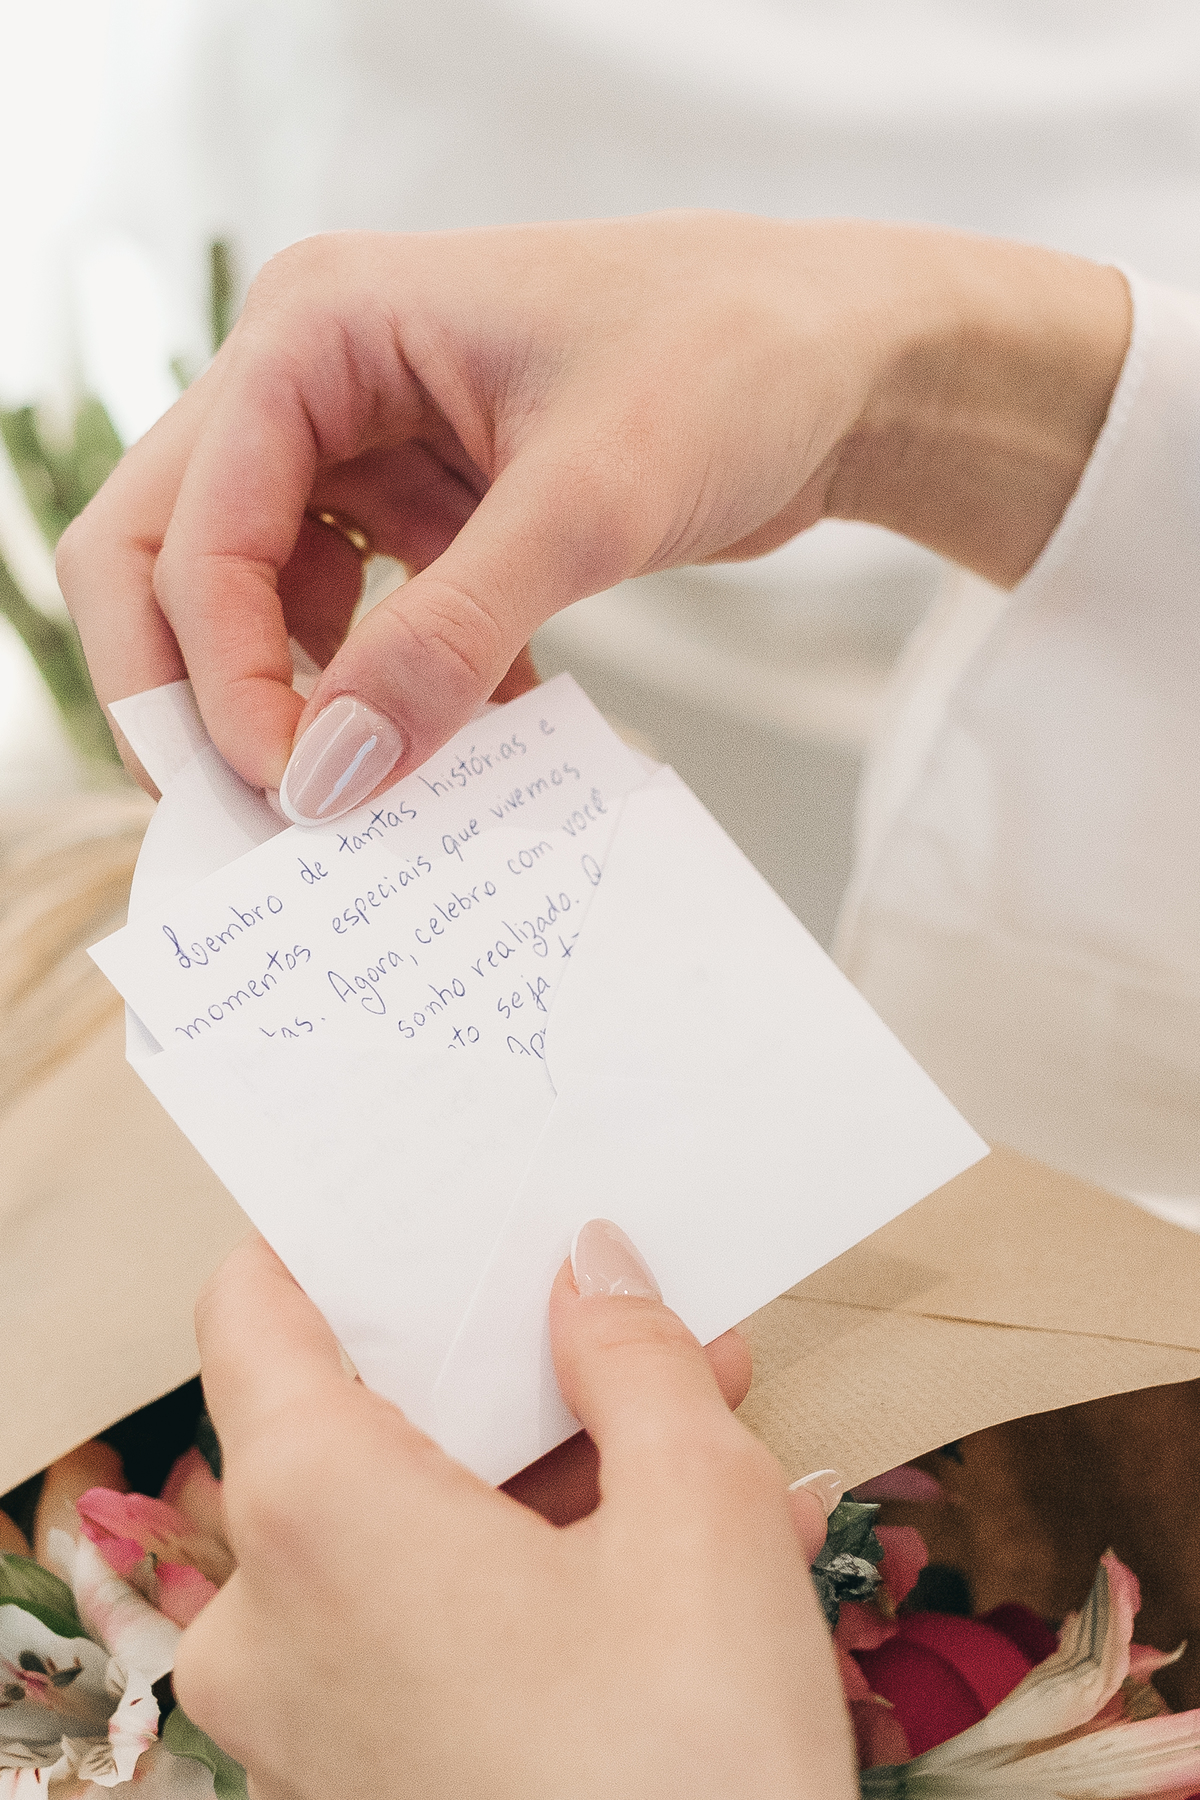 Lembro de tantas histórias e
momentos especiais que vivemos
Agora, celebro com você
sonho realizado.
seja